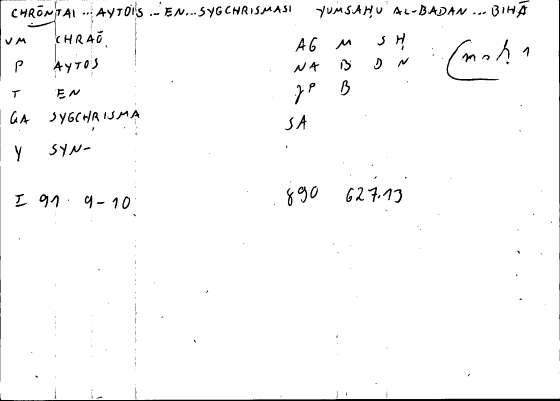 CHRŌNTAI ... AYTOIS ... EN ... SYGCHRISMASI YUMSAḤU AL-BADAN ... BIHĀ
VM CHRAŌ AG M S Ḥ (msḥ 1
P AYTOS NA B D N
T EN JP B
GA SYGCHRISMA SA
Y SYN-
I 91 9-10 890 627.13